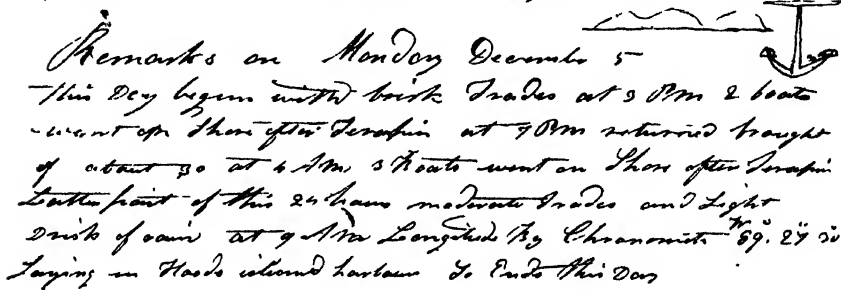 Remarks on Monday December 5
This Day begins with brisk Trades at 3 PM 2 boats
went on Shore after Terapin at 7 PM returned brought
of about 30 at 4 AM 3 Boats went on Shore after Terapin
Latter part of this 24 hours moderate Trades and Light
Drisk of rain at 9 AM Longitude By Chronomite W 89. 27 30
Laying in Hoods island harbour So Ends this Day